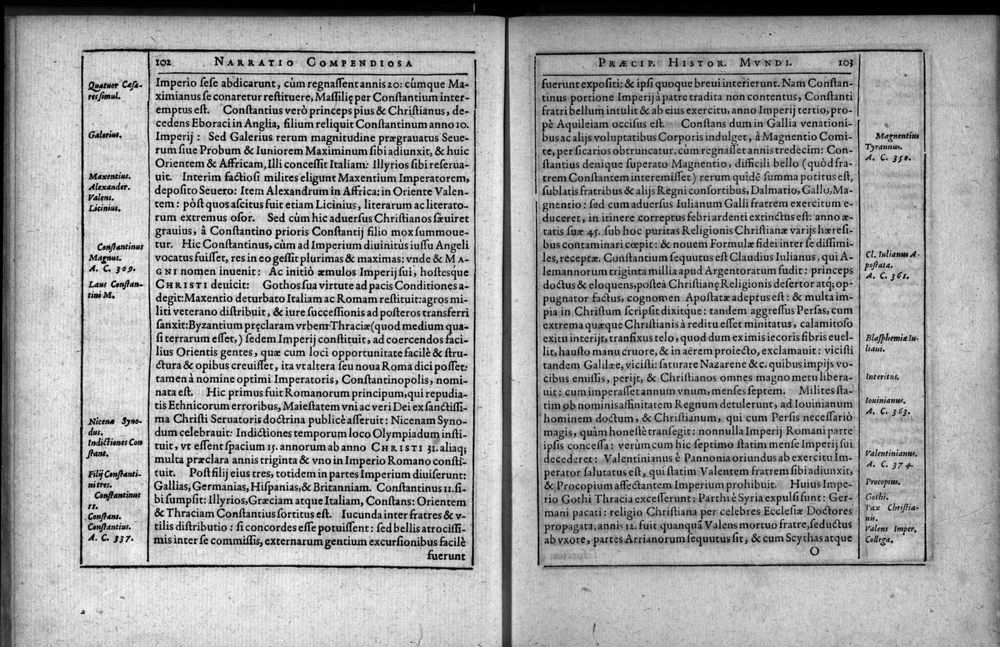 102 NARRATIO COMPENDIOSA
Quatuor Cæsa-
res simul.
Galerius.
Maxentius.
Alexander.
Valens.
Licinius.
Constantinus
Magnus.
A. C. 309.
Laus Constan-
tini M.
Nicena Syno-
dus.
Indictiones Con
stant.
Filij Constanti-
ni tres.
Constantinus
11.
Constans.
Constantius.
A. C. 337.
Imperio sese abdicarunt, cùm regnassent annis 20: cúmque Ma-
ximianus se conaretur restituere, Massilię per Constantium inter-
emptus est. Constantius verò princeps pius & Christianus, de-
cedens Eboraci in Anglia, filium reliquit Constantinum anno 10.
Imperij: Sed Galerius rerum magnitudine prægrauatus Seue-
rum siue Probum & Iuniorem Maximinum sibi adiunxit, & huic
Orientem & Affricam, Illi concessit Italiam: Illyrios sibi reserua-
uit. Interim factiosi milites eligunt Maxentium Imperatorem,
deposito Seuero: Item Alexandrum in Affrica: in Oriente Valen-
tem: pòst quos ascitus fuit etiam Licinius, literarum ac literato-
rum extremus osor. Sed cùm hic aduersus Christianos sæuiret
grauius, à Constantino prioris Constantij filio mox summoue-
tur. Hic Constantinus, cùm ad Imperium diuinitùs iussu Angeli
vocatus fuisset, res in eo gessit plurimas & maximas: vnde & MA-
GNI nomen inuenit: Ac initiò æmulos Imperij sui, hostesque
CHRISTI deuicit: Gothos sua virtute ad pacis Conditiones a-
degit: Maxentio deturbato Italiam ac Romam restituit: agros mi-
liti veterano distribuit, & iure successionis ad posteros transferri
sanxit: Byzantium pręclaram vrbem Thraciæ (quod medium qua-
si terrarum esset,) sedem Imperij constituit, ad coercendos faci-
lius Orientis gentes, quæ cum loci opportunitate facilè & stru-
ctura & opibus creuisset, ita vt altera seu noua Roma dici posset:
tamen à nomine optimi Imperatoris, Constantinopolis, nomi-
nata est. Hic primus fuit Romanorum principum, qui repudia-
tis Ethnicorum erroribus, Maiestatem vni ac veri Dei ex sanctissi-
ma Christi Seruatoris doctrina publicè asseruit: Nicenam Syno-
dum celebrauit: Indictiones temporum loco Olympiadum insti-
tuit, vt essent spacium 15. annorum ab anno CHRISTI 31. aliaq;
multa præclara annis triginta & vno in Imperio Romano consti-
tuit. Post filij eius tres, totidem in partes Imperium diuiserunt:
Gallias, Germanias, Hispanias, & Britanniam. Constantinus 11. si-
bi sumpsit: Illyrios, Græciam atque Italiam, Constans: Orientem
& Thraciam Constantius sortitus est. Iucunda inter fratres & v-
tilis distributio: si concordes esse potuissent: sed bellis atrocissi-
mis inter se commissis, externarum gentium excursionibus facilè
fuerunt
PRÆCIP. HISTOR. MVNDI. 103
fuerunt expositi: & ipsi quoque breui interierunt. Nam Constan-
tinus portione Imperij à patre tradita non contentus, Constanti
fratri bellum intulit & ab eius exercitu, anno Imperij tertio, pro-
pè Aquileiam occisus est. Constans dum in Gallia venationi-
bus ac alijs voluptatibus Corporis indulget, à Magnentio Comi-
te, per sicarios obtruncatur, cùm regnasset annis tredecim: Con-
stantius denique superato Magnentio, difficili bello (quòd fra-
trem Constantem interemisset) rerum quidẽ summa potitus est,
sublatis fratribus & alijs Regni consortibus, Dalmatio, Gallo, Ma-
gnentio: sed cum aduersus Iulianum Galli fratrem exercitum e-
duceret, in itinere correptus febri ardenti extinctus est: anno æ-
tatis suæ 45. sub hoc puritas Religionis Christianæ varijs hæresi-
bus contaminari cœpit: & nouem Formulæ fidei inter se dissimi-
les, receptæ. Constantium sequutus est Claudius Iulianus, qui A-
lemannorum triginta millia apud Argentoratum fudit: princeps
doctus & eloquens, posteà Christianę Religionis desertor atq; op-
pugnator factus, cognomen Apostatæ adeptus est: & multa im-
pia in Christum scripsit dixitque: tandem aggressus Persas, cum
extrema quæque Christianis à reditu esset minitatus, calamitoso
exitu interijt, transfixus telo, quod dum ex imis iecoris fibris euel-
lit, hausto manu cruore, & in aerem proiecto, exclamauit: vicisti
tandem Galilæe, vicisti: saturare Nazarene & c. quibus impijs vo-
cibus emissis, perijt, & Christianos omnes magno metu libera-
uit: cum imperasset annum vnum, menses septem. Milites sta-
tim ob nominis affinitatem Regnum detulerunt, ad Iouinianum
hominem doctum, & Christianum, qui cum Persis necessariò
magis, quàm honestè transegit: nonnulla Imperij Romani parte
ipsis concessa: verùm cum hic septimo statim mense Imperij sui
decederet: Valentinianus è Pannonia oriundus ab exercitu Im-
perator salutatus est, qui statim Valentem fratrem sibi adiunxit,
& Procopium affectantem Imperium prohibuit. Huius Impe-
rio Gothi Thracia excesserunt: Parthi è Syria expulsi sunt: Ger-
mani pacati: religio Christiana per celebres Ecclesiæ Doctores
propagata, annis 12. fuit quanquã Valens mortuo fratre, seductus
ab vxore, partes Arrianorum sequutus sit, & cum Scythas atque
O
Magnentius
Tyrannus.
A. C. 350.
Cl. Iulianus A-
postata.
A. C. 361.
Blasphemia Iu-
liani.
Interitus.
Iouinianus.
A. C. 363.
Valentinianus.
A. C. 374.
Procopius.
Gothi.
Pax Christia-
nis.
Valens Imper.
Collega.